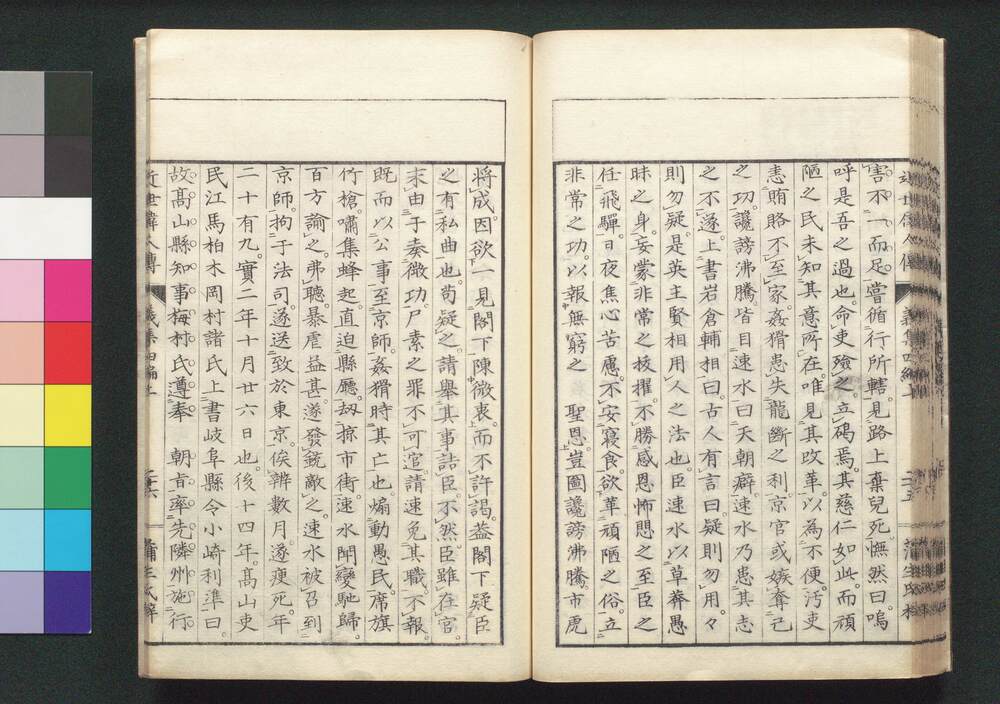 害不一而足。嘗循行所轄。見路上棄兒死。憮然曰。嗚
呼是吾之過也。命吏殮之。立碣焉。其慈仁如此。而頑
陋之民未知其意所在。唯見其改革。以為不便。汚吏
恚賄賂不至家。姦猾患失龍斷之利。京官或嫉奪己
之功。讒謗沸騰。皆目速水曰天朝癖。速水乃患其志
之不遂。上書岩倉輔相曰。古人有言曰。疑則勿用。々
則勿疑。是英主賢相用人之法也。臣速水以草莽愚
昧之身。妄蒙非常之拔擢。不勝感恩怖懼之至。臣之
任飛驒。日夜焦心苦慮。不安寢食。欲革頑陋之俗。立
非常之功。以報無窮之 聖恩。豈圖讒謗沸騰。市虎
將成。因欲一見閣下陳微衷。而不許謁。蓋閣下疑臣
之有私曲也。苟疑之。請舉其事詰臣。不然臣雖在官。
末由于奏微功。尸素之罪不可逭。請速免其職。不報。
既而以公事至京師。姦猾時其亡也。煽動愚民。席旗
竹槍。嘯集蜂起。直迫縣廳。劫掠市街。速水聞變馳歸。
百方諭之。弗聽。暴虐益甚。遂發銃敵之。速水被召到
京師。拘于法司。遂送致於東京。俟辨數月。遂瘐死。年
二十有九。實二年十月廿六日也。後十四年。高山吏
民江馬柏木岡村諸氏上書岐阜縣令小崎利準曰。
故高山縣知事梅村氏。遵奉 朝旨。率先隣州。施行
近世偉人傳 義集四編上 二十六 蒲生氏梓